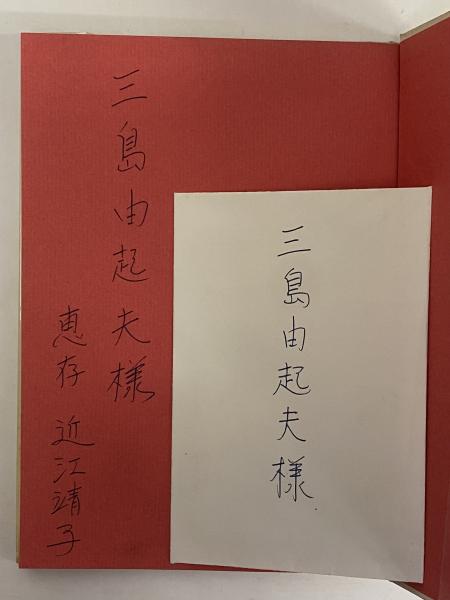 三島由起夫様
恵存 近江靖子
三島由起夫様